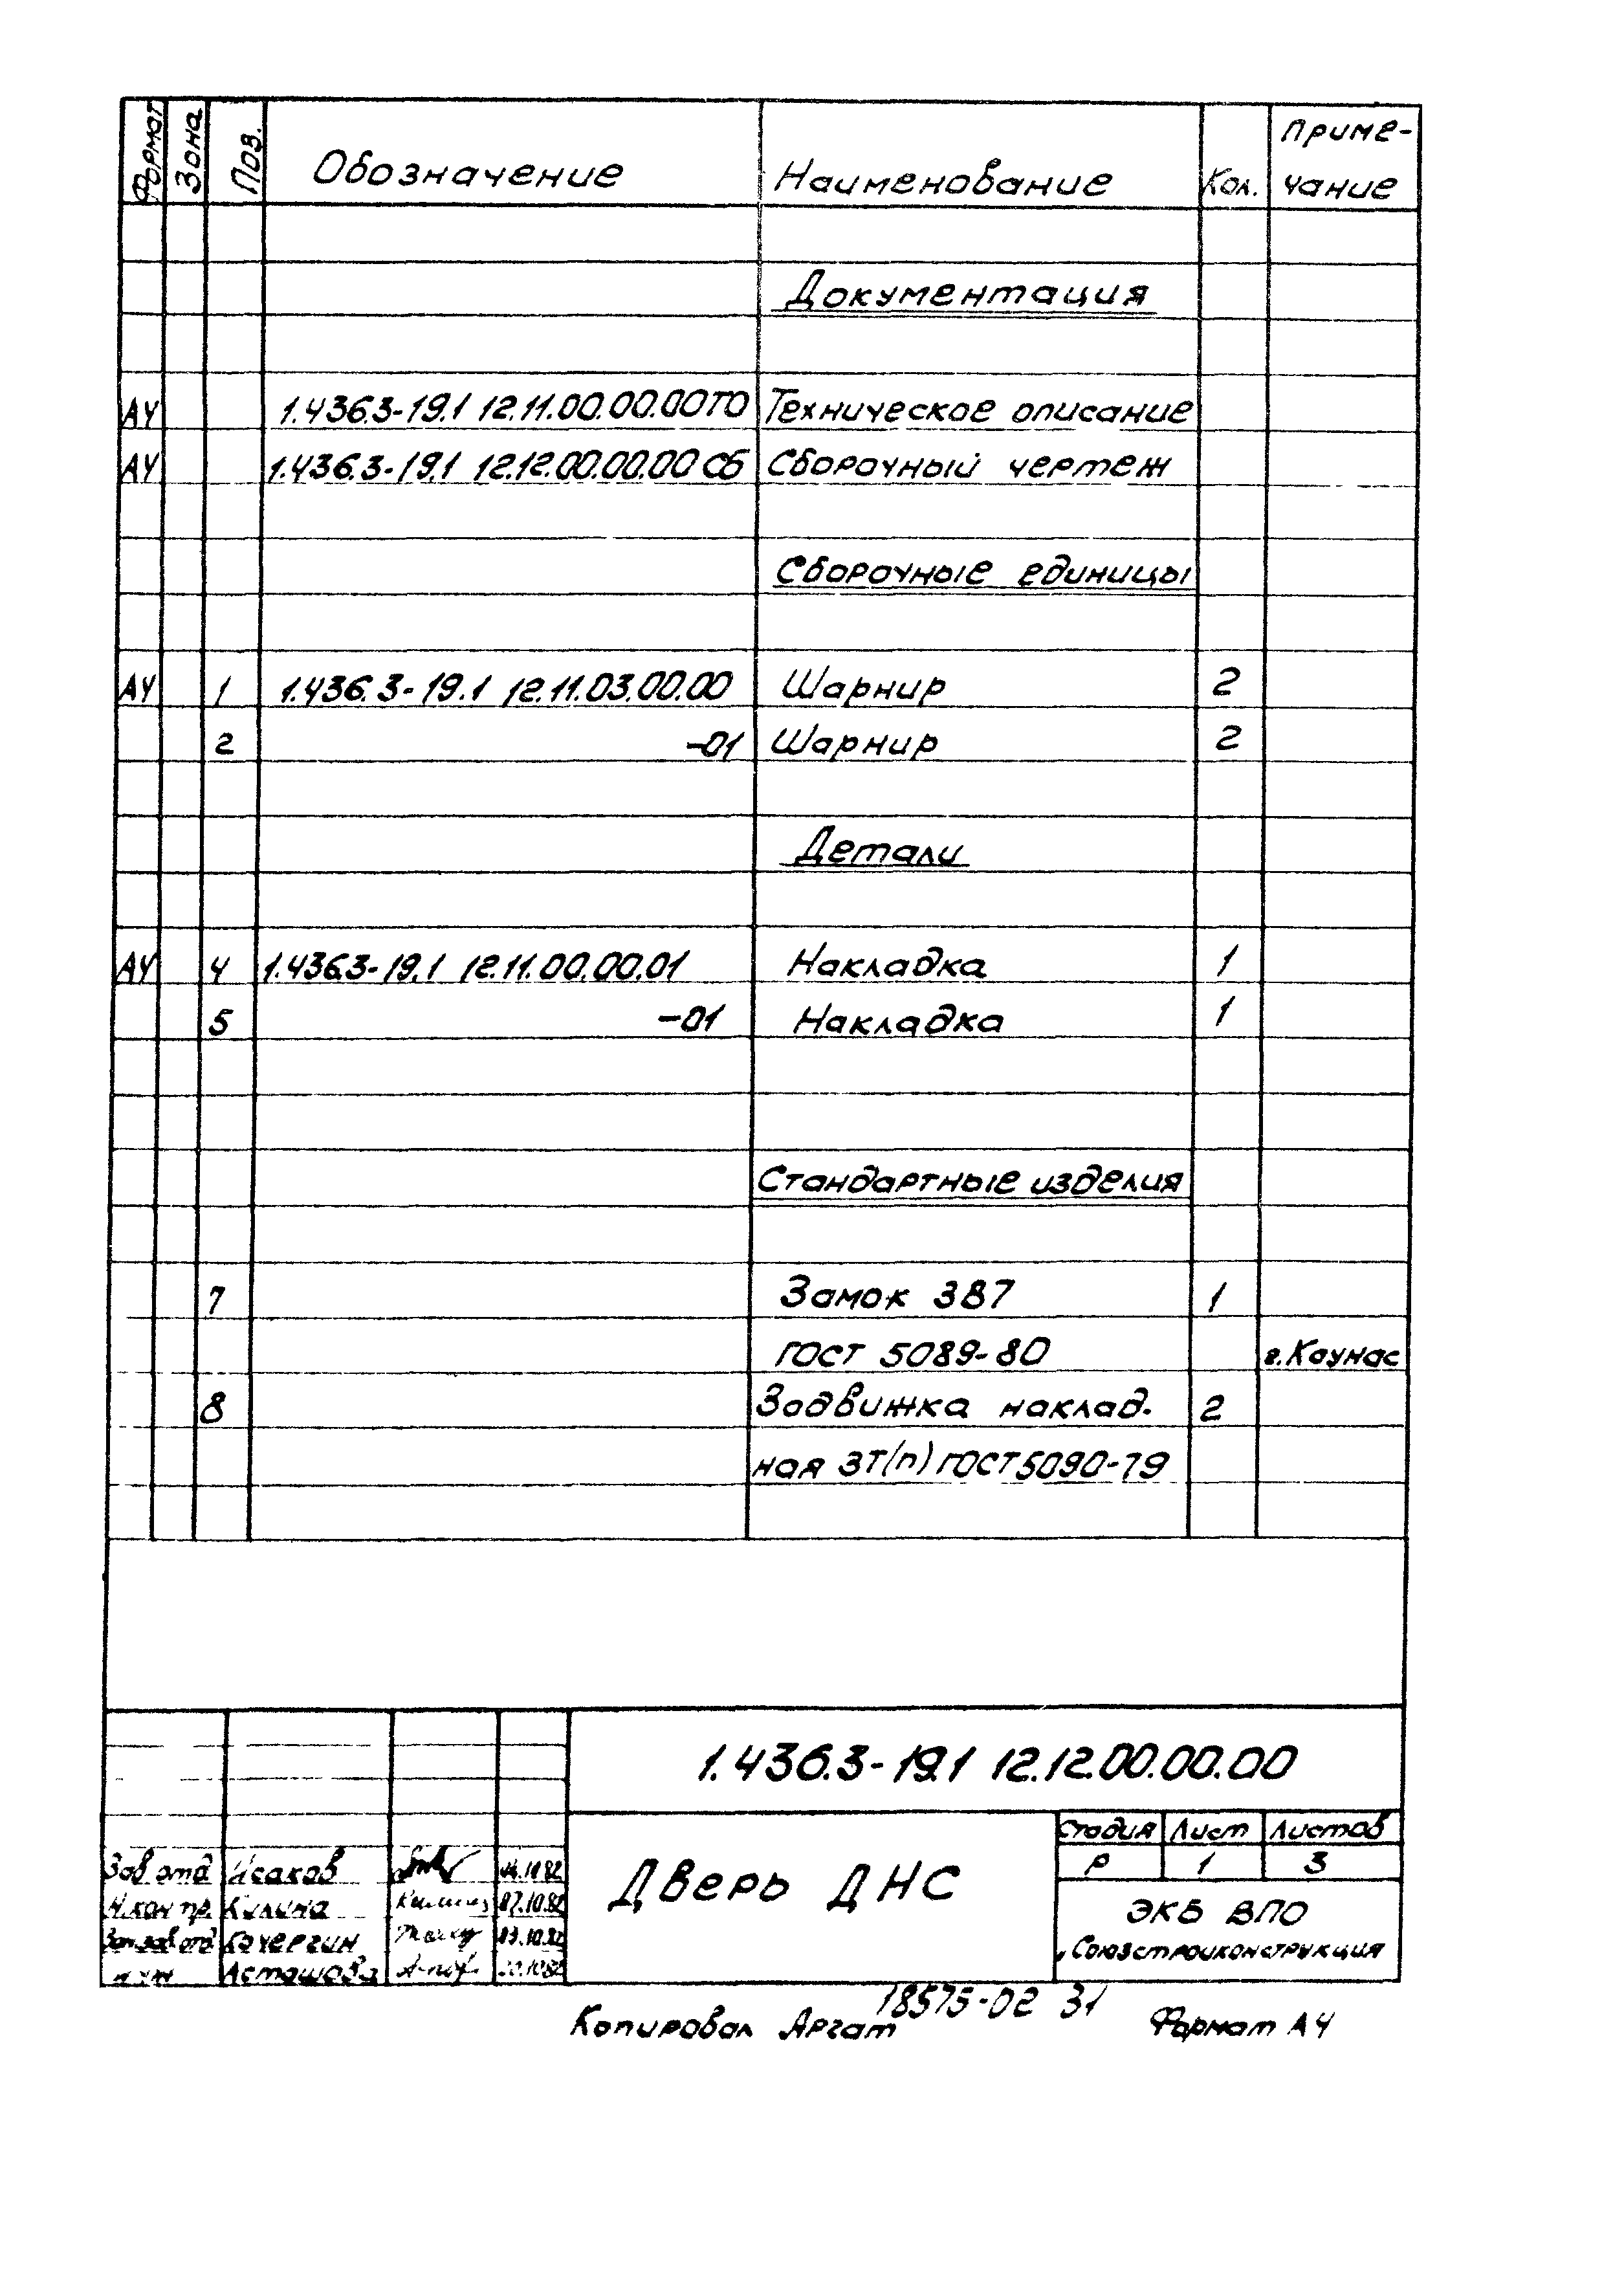 Формат Зона Поз. Обозначение Наименование Кол. Приме-
чание
Документация
А4 1.436.3-19.1 12.11.00.00.00ТО Техническое описание
А4 1.436.3-19.1 12.12.00.00.00 СБ Сборочный чертеж
Сборочные единицы
А4 1 1.436.3-19.1 12.11.03.00.00 Шарнир 2
2 -01 Шарнир 2
Детали
А4 4 1.436.3-19.1 12.11.00.00.01 Накладка 1
5 -01 Накладка 1
Стандартные изделия
7 Замок ЗВ7 1
ГОСТ 5089-80 г. Каунас
8 Задвижка наклад- 2
ная ЗТ(п) ГОСТ 5090-79
1.436.3-19.1 12.12.00.00.00
Стадия Лист Листов
Р 1 3
Дверь ДНС
Зав отд Исаков
Н.контр. Килина 07.10.82
Зам зав отд Кочергин
Асташова
ЭКБ ВПО
"Союзстройконструкция
18575-02 31
Копировал Аргат Формат А4